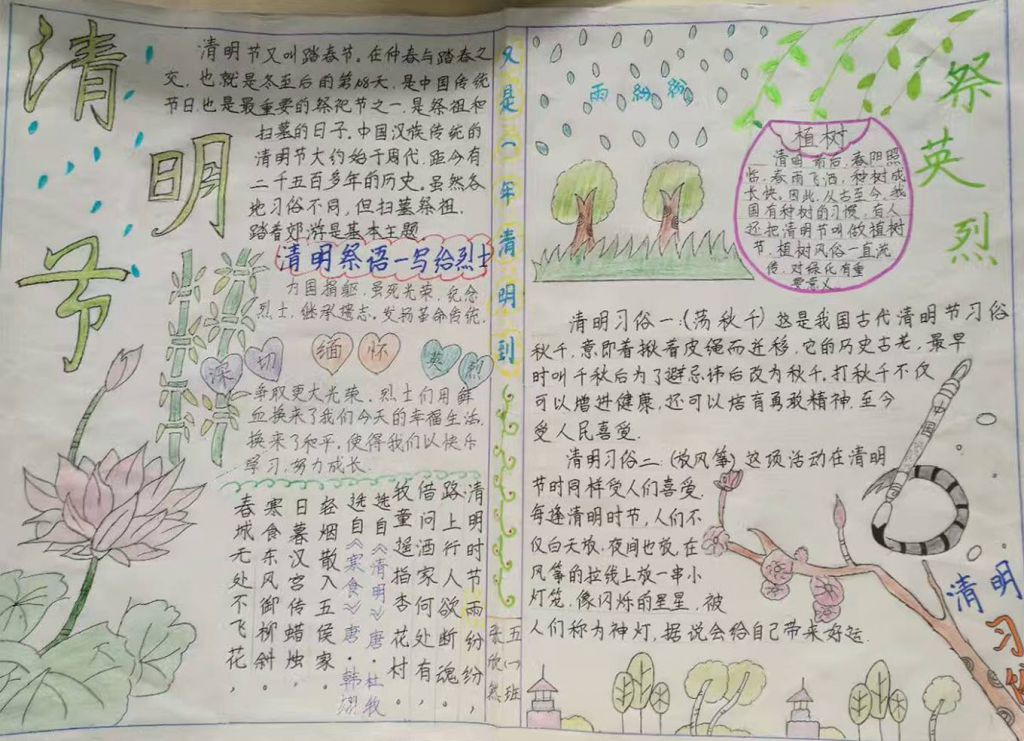 清明节
清明节又叫踏春节。在仲春与踏春之
交,也就是冬至后的第108天,是中国传统
节日也是最重要的祭祀节之一,是祭祖和
扫墓的日子.中国汉族传统的
清明节大约始于周代,距今有
二千五百多年的历史。虽然各
地习俗不同,但扫墓祭祖.
踏青郊游是基本主题
清明祭语一写给烈士
为国捐躯,虽死光荣,纪念
烈士,继承遗志,发扬革命传统.
深切缅怀英烈
争取更大光荣.烈士们用鲜
血换来了我们今天的幸福生活.
换来了和平,使得我们以快乐
学习,努力成长.
清明时节雨纷纷,
路上行人欲断魂。
借问酒家何处有,
牧童遥指杏花村。
选自《清明》唐·杜牧
选自《寒食》唐·韩翃
轻烟散入五侯家.
日暮汉宫传蜡烛
寒食东风御柳斜。
春城无处不飞花,
又是一年清明到
五(一)班
张欣然
雨纷纷
植树
清明前后,春阳照
临,春雨飞洒,种树成
长快。因此,从古至今,我
国有种树的习惯,有人
还把清明节叫做植树
节.植树风俗一直流
传,对绿化有重
要意义.
祭英烈
清明习俗一:(荡秋千)这是我国古代清明节习俗
秋千,意即着揪着皮绳而迁移.它的历史古老,最早
时叫千秋后为了避忌讳后改为秋千,打秋千不仅
可以增进健康,还可以培育勇敢精神.至今
受人民喜爱.
清明习俗二:(放风筝)这项活动在清明
节时同样受人们喜爱.
每逢清明时节,人们不
仅白天放,夜间也放,在
风筝的拉线上放一串小
灯笼,像闪烁的星星,被
人们称为神灯,据说会给自己带来好运.
中国
清明
习俗